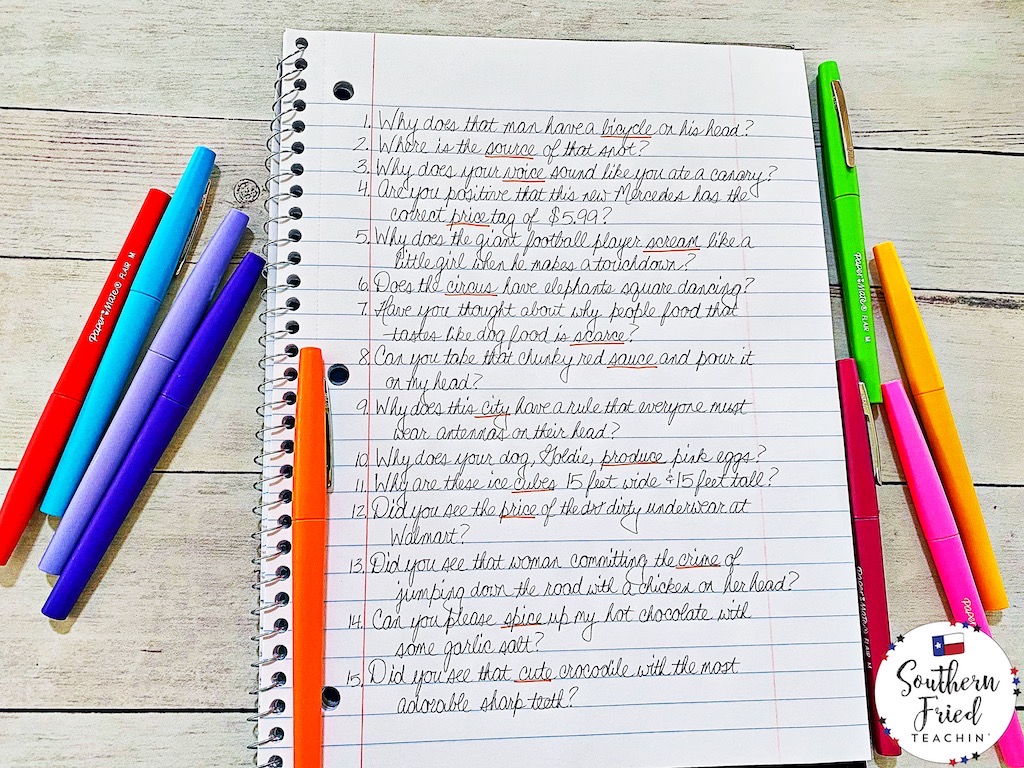 1. Why does that man have a bicycle on his head?
2. Where is the source of that snot?
3. Why does your voice sound like you ate a canary?
4. Are you positive that this new Mercedes has the
correct price tag of $5.99?
5. Why does the giant football player scream like a
little girl when he makes a touchdown?
6. Does the circus have elephants square dancing?
7. Have you thought about why people food that
tastes like dog food is scarce?
8. Can you take that chunky red sauce and pour it
on my head?
9. Why does this city have a rule that everyone must
wear antennas on their head?
10. Why does your dog, Goldie, produce pink eggs?
11. Why are these ice cubes 15 feet wide & 15 feet tall?
12. Did you see the price of the dirty underwear at
Walmart?
13. Did you see that woman committing the crime of
jumping down the road with a chicken on her head?
14. Can you please spice up my hot chocolate with
some garlic salt?
15. Did you see that cute crocodile with the most
adorable sharp teeth?
Paper Mate FLAIR M
Paper Mate FLAIR M
Paper Mate FLAIR M
Southern
Fried
TEACHIN'